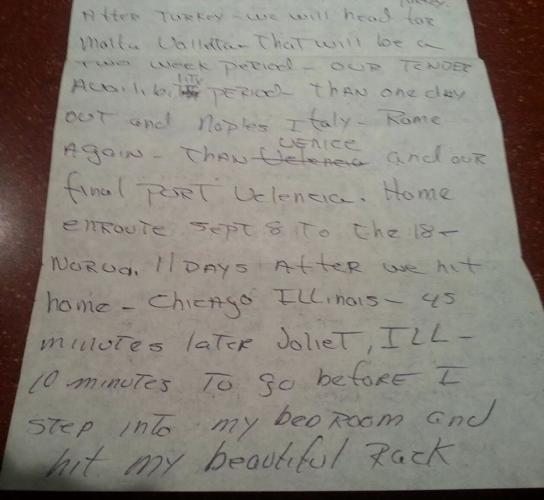 Turkey.
After Turkey - we will head for
Malta Valletta - That will be a
two week period - our Tender
Availibility period - Than one day
out and Naples Italy - Rome
Again - Than Velencia Venice and our
final port Velencia. Home
enroute Sept 8 to the 18 -
Norva. 11 Days After we hit
home - Chicago Illinois - 45
minutes later Joliet, Ill -
10 minutes to go before I
step into my bedroom and
hit my beautiful Rack